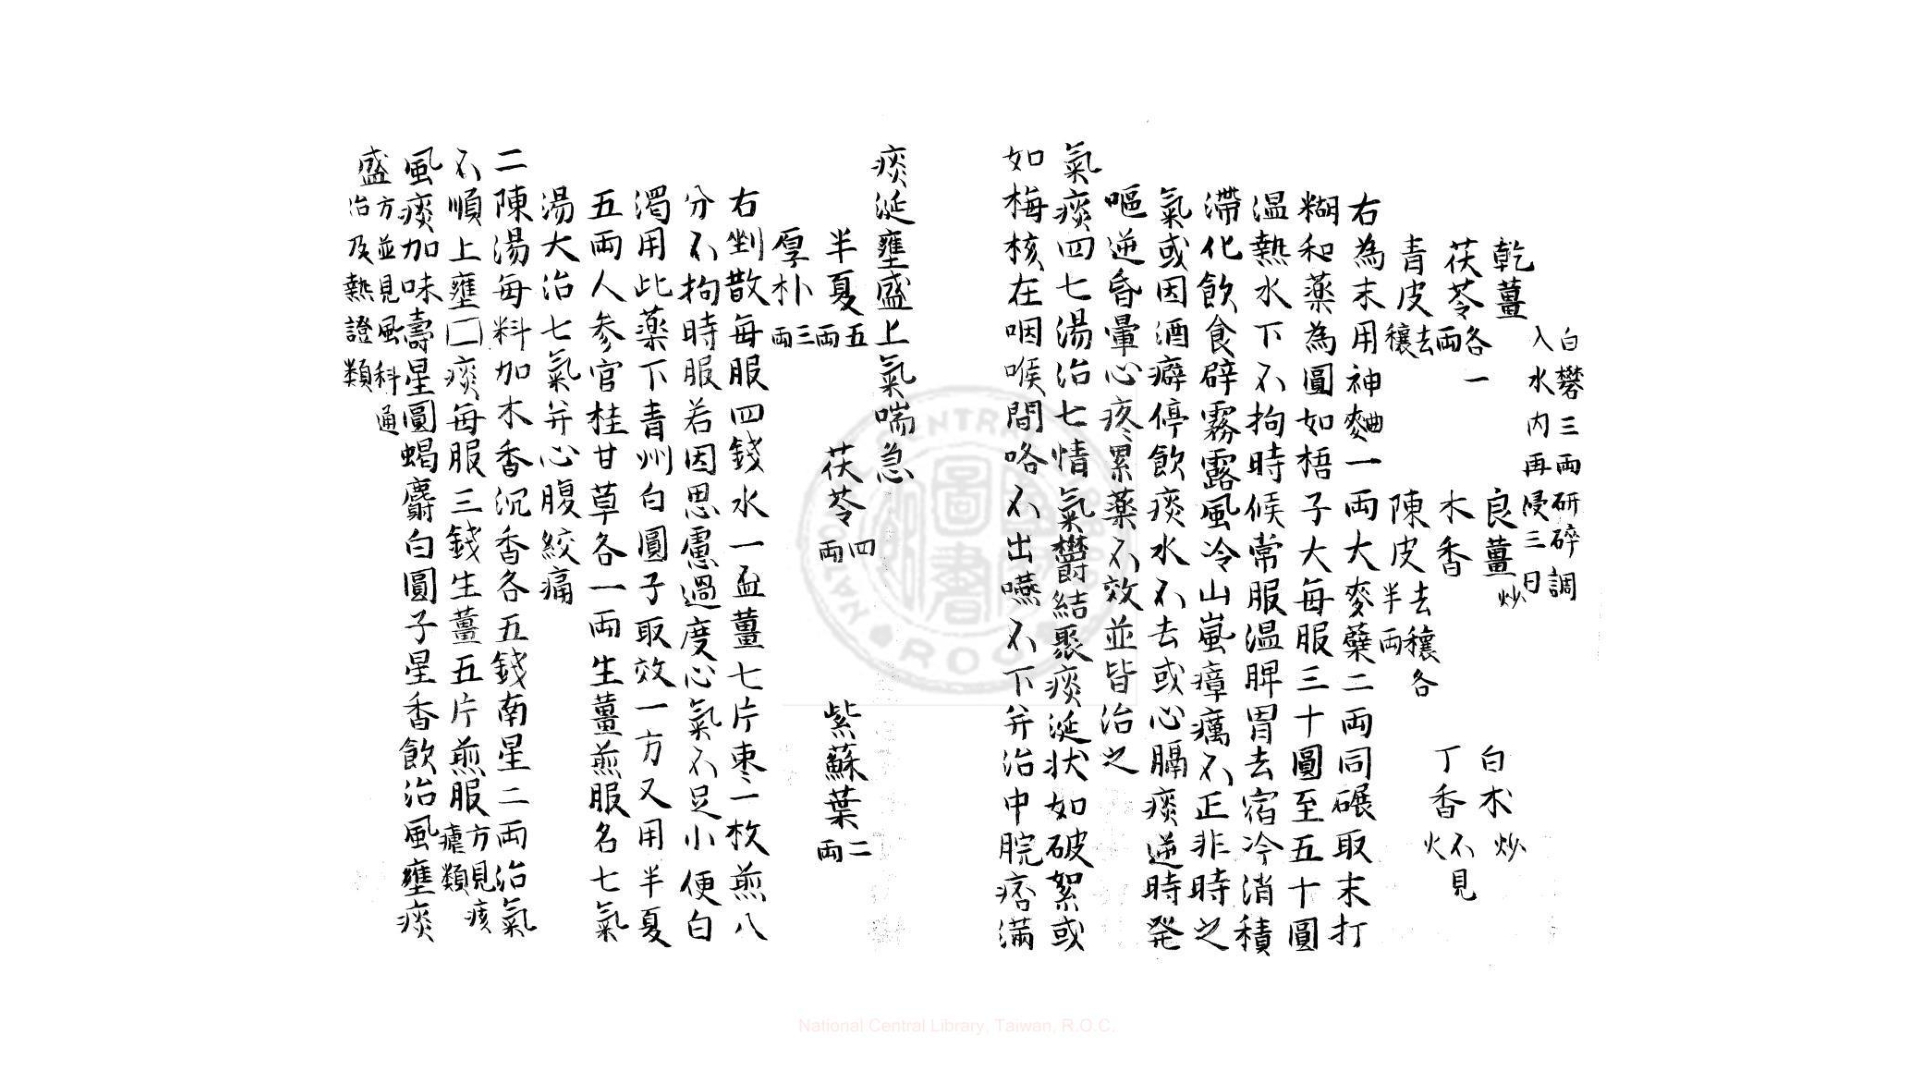 白礬三両研碎調
入水内再浸三日
乾薑 良薑炒 白朮炒
茯苓各一両 木香 丁香不見火
青皮去穰 陳皮去穰各半両
右為末用神麯一両大麥蘖二両同碾取末打
糊和薬為圓如梧子大每服三十圓至五十圓
温熱水下不拘時候常服温脾胃去宿冷消積
滯化飲食辟霧露風冷山嵐瘴癘不正非時之
氣或因酒癖停飲痰水不去或心膈痰逆時発
嘔逆昏暈心疼累薬不效並皆治之
氣痰四七湯治七情氣欝結聚痰涎状如破絮或
如梅核在咽喉間咯不出嚥不下并治中脘痞滿
痰涎壅盛上氣喘急
半夏五両 茯苓四両 紫蘇葉二両
厚朴三両
右剉散每服四錢水一盃薑七片棗一枚煎八
分不拘時服若因思慮過度心氣不足小便白
濁用此薬下青州白圓子取效一方又用半夏
五両人參官桂甘草各一両生薑煎服名七氣
湯大治七氣并心腹絞痛
二陳湯每料加木香沉香各五錢南星二両治氣
不順上壅□痰每服三錢生薑五片煎服方見痎瘧類
風痰加味壽星圓蝎麝白圓子星香飲治風壅痰
盛方並見風科通治及熱證類
NATIONAL CENTRAL LIBRARY ROC
National Central Library, Taiwan, R.O.C.